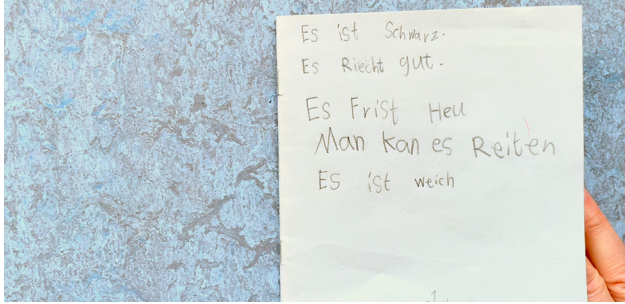 Es ist Schwarz.
Es Riecht gut.
Es Frist Heu
Man kan es Reiten
Es ist weich